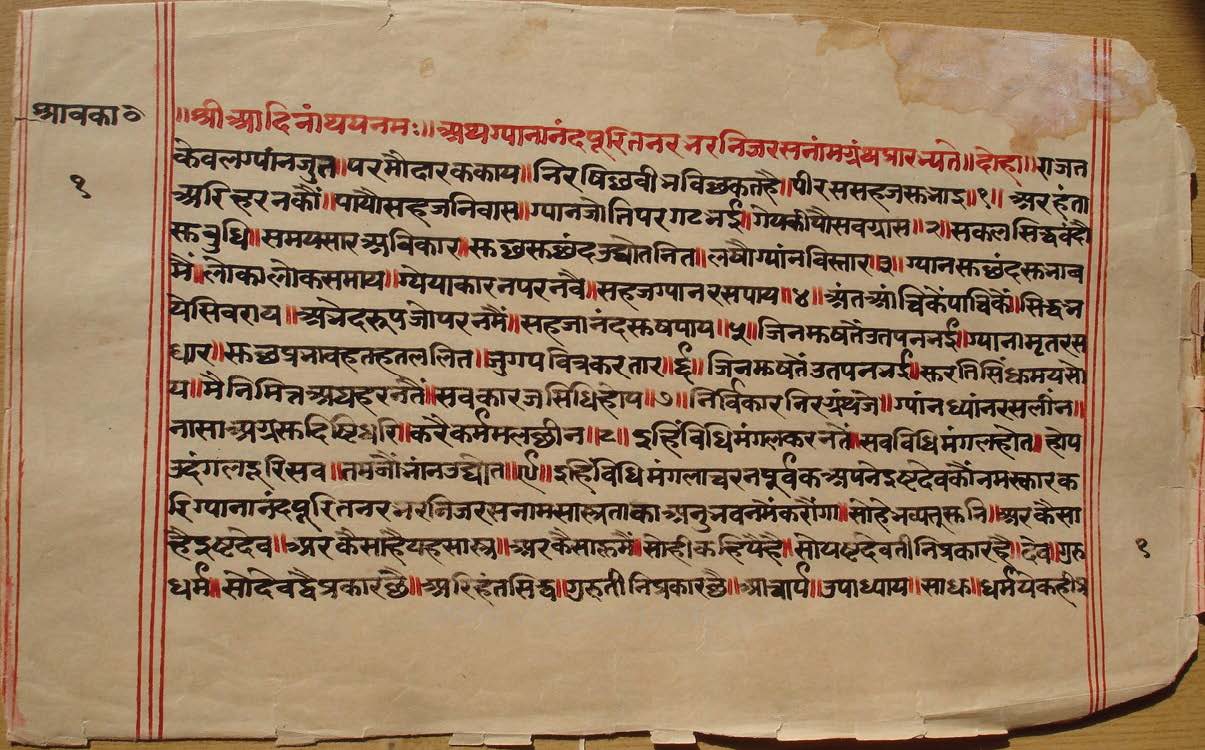 श्रावका०
॥श्रीआदिनांथयनमः॥अथग्यानानंदपूरितनरभरनिजरसनांमग्रंथप्रारभ्यते॥दोहा॥राजत
१
केवलग्यांनजुत॥परमौदारककाय॥निरषिछवीभविछकतहै॥पीरससहजसुभाइ॥१॥अरहंता
अरिहरनकौं॥पायौसहजनिवास॥ग्यानजोतिपरगटभई॥गेयकीयौसवग्रास॥२॥सकलसिद्धवंदौ
सुवुधि॥समयसारअविकार॥सुछसुछंदउद्योतनित॥लषौग्यांनविस्तार॥३॥ग्यानसुछंदसुभाव
मैं॥लोकालोकसमाय॥ग्येयाकारनपरनवै॥सहजग्यानरसपाय॥४॥अंतआंचिकेंपाचिकें॥सिद्धभ
येसिवराय॥अभेदरूपजोपरनमैं॥सहजानंदसुषपाय॥५॥जिनमुषतैंउतपनभई॥ग्यानामृतरस
धार॥सुछप्रभावहतहतललित॥जुगपवित्रकरतार॥६॥जिनमुषतैंउतपनभई॥सुरतिसिंधुमयसो
य॥मैनिमित्तअघहरनतैं॥सवकारजसिधिहोय॥७॥निर्विकारनिरग्रंथजे॥ग्यांनध्यांनरसलीन॥
नासाअग्रसुदिष्टिधरि॥करैकर्ममलछीन॥८॥इहिंविधिमंगलकरनतैं॥सवविधिमंगलहोत॥होय
उदंगलदूरिसव॥तमजौंभांनउद्योत॥९॥इहिंविधिमंगलाचरनपूर्वकअपनेइष्टदेवकौंनमस्कारक
रिग्यानानंदपूरितनरभरनिजरसनामसास्त्रताकाअनुभवनमैंकरौंगा॥सोहेभव्यतूसुनि॥अरकैसा
हैइष्टदेव॥अरकैसाहैयहसास्त्र॥अरकैसाहूमैं॥सोहीकहियेहै॥सोयष्टदेवतीनिप्रकारहै॥देव॥गुरु
१
धर्म॥सोदेवद्वैप्रकारछै॥अरिहंतसिद्ध॥गुरुतीनिप्रकारछै॥आचार्य॥उपाध्याय॥साधु॥धर्मयेकहीप्र